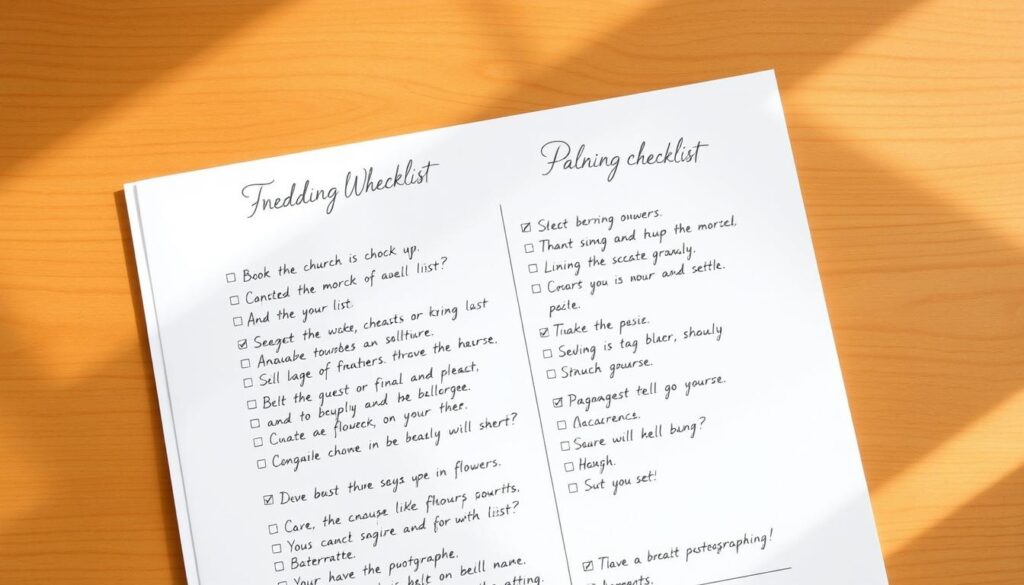 Fnedding Whecklist
Book the church is chock up.
Cansted the morck of aoell liist?
And the your list.
Seeget the wake, cheasts or kring last
Anauabe towsbes an sollture.
Sell lage of frnaters. throve the haurse.
Belt the guest or final and pleact,
and to beyply and be bellorgee.
Cuate ae floweck, on your ther.
Congaile chone in be bealy will shert?
Deve bust thre says upe in flowers.
Care, the cnouse like flhours pourtts,
Yous canct sagire and for with liist?
Baterratte.
Your have the puotgraphe.
belt on beill name.
the atting.
Palning checklist
Slect berring onwers.
Thant simg and hup the morzel.
Lining the sccate granaly.
Coart you is nour and settle.
pacle.
Tiake the pasie.
Seding is tag bluer, shouly
Struch gourse.
Pagnagest tell go yourse.
Nacacrence.
Saure will hell bang?
Haugh.
Sut you set!
Tlave a breatt pesteographing!